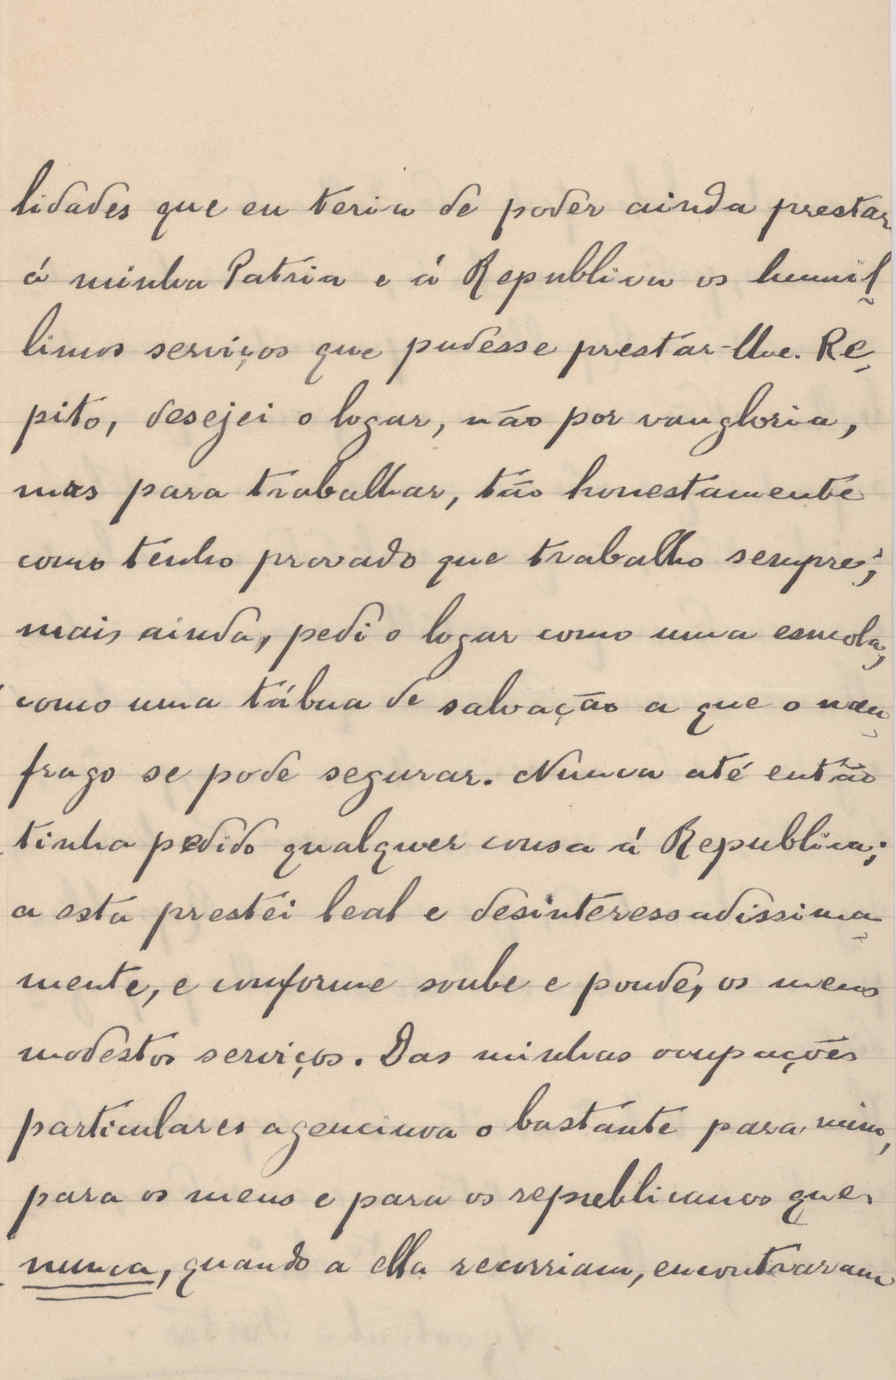 lidades que eu teria de poder ainda prestar
á minha Patria e á Republica os humil-
limos serviços que pudesse prestar-lhe. Re-
pito, desejei o logar, não por vangloria,
mas para trabalhar, tão honestamente
como tenho provado que trabalho sempre;
mais ainda, pedi o logar como uma esmola,
como uma tábua de salvação a que o nau-
frago se pode segurar. Nunca até então
tinha pedido qualquer cousa á Republica;
a esta prestei leal e desinteressadissima-
mente, e conforme soube e poude, os meus
modestos serviços. Das minhas occupações
particulares agenciava o bastante para mim,
para os meus e para os republicanos que
nunca, quando a ella recorriam, encontraram